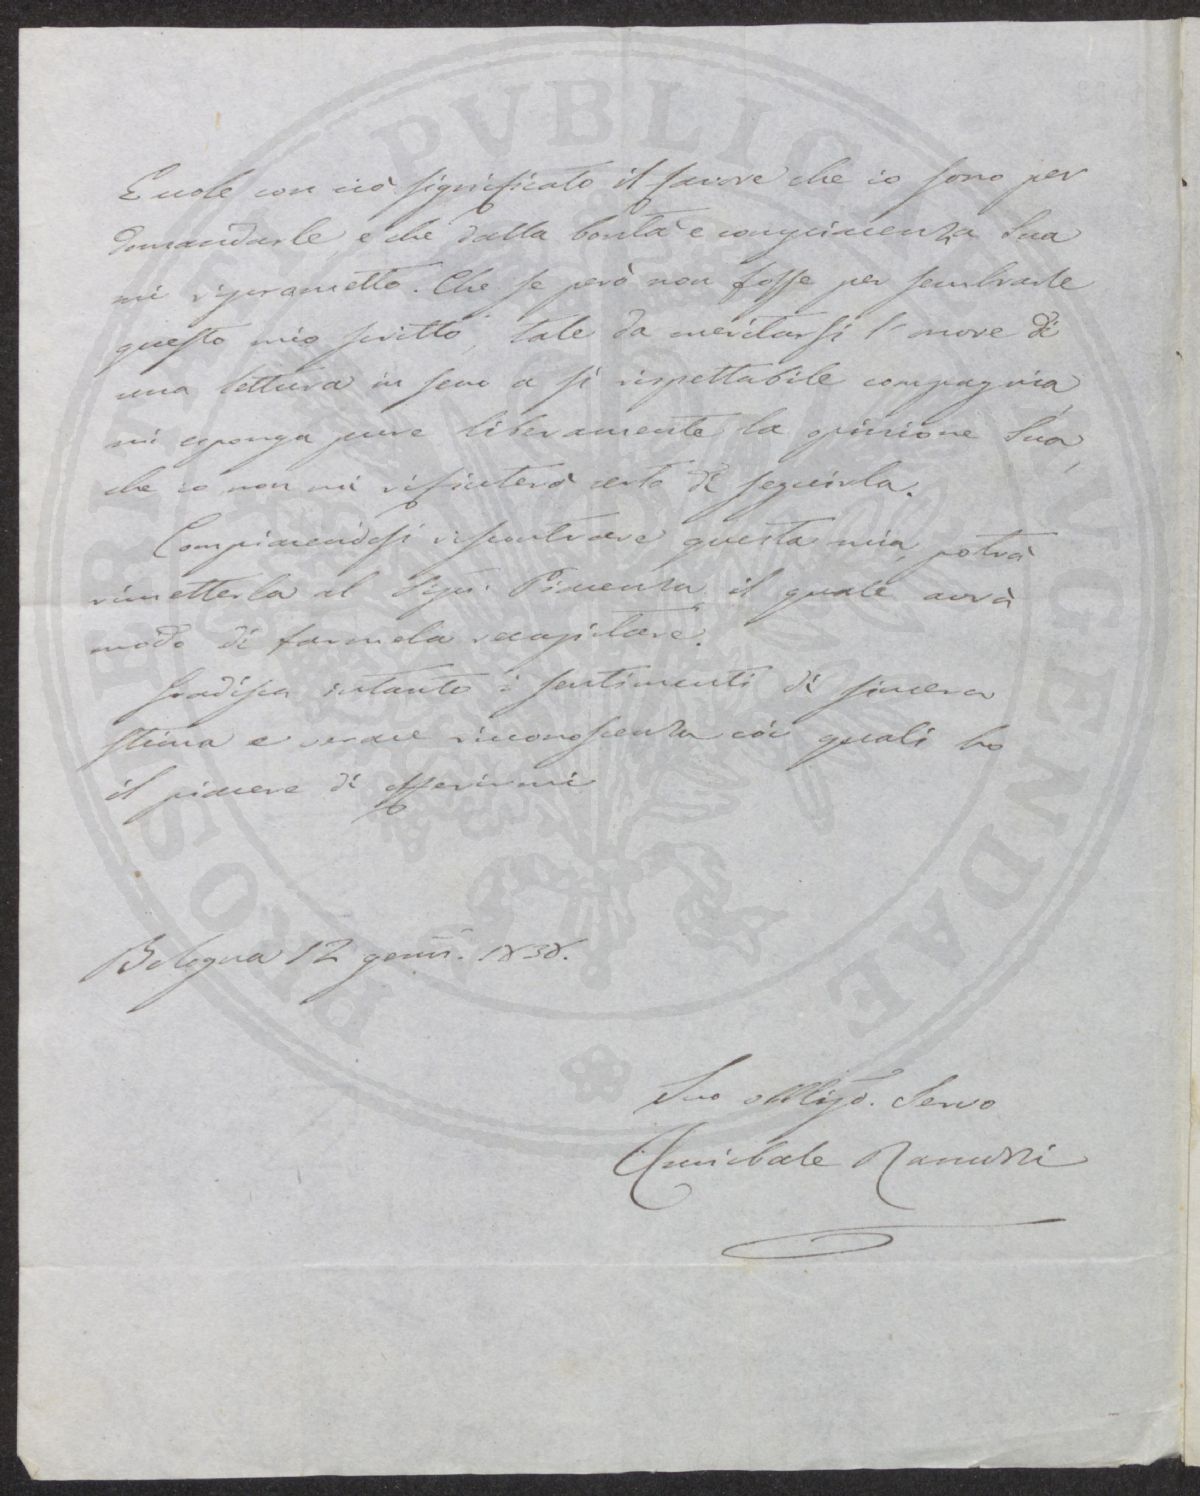 Eccole con ciò significato il favore che io sono per
domandarle, e che dalla bontà e compiacenza Sua
mi riprometto. Che se però non fosse per sembrarle
questo mio scritto, tale da meritarsi l'onore di
una lettura in seno a sì rispettabile compagnia,
mi esponga pure liberamente la opinione Sua,
che io non mi rifiuterò certo di seguirla.
Compiacendosi riscontrare questa mia, potrà
rimetterla al Sigr. Piacenza il quale avrà
modo di farmela recapitare.
Gradisca intanto i sentimenti di sincera
stima e verace riconoscenza coi quali ho
il piacere di offerirmi
Bologna 12 genn. 1838.
Suo obbligo. Servo
Annibale Ranuzzi
PROSPERITATI PVBLICAE AVGENDAE